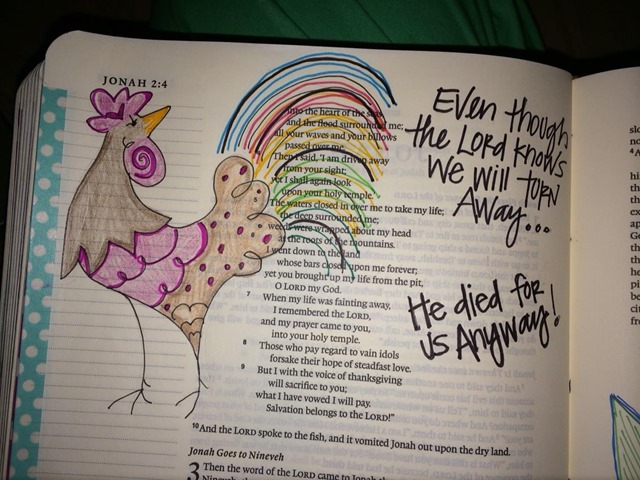 JONAH 2:4
into the heart of the seas,
and the flood surrounded me;
all your waves and your billows
passed over me.
Then I said, 'I am driven away
from your sight;
yet I shall again look
upon your holy temple.'
The waters closed in over me to take my life;
the deep surrounded me;
weeds were wrapped about my head
at the roots of the mountains.
I went down to the land
whose bars closed upon me forever;
yet you brought up my life from the pit,
O LORD my God.
7 When my life was fainting away,
I remembered the LORD,
and my prayer came to you,
into your holy temple.
8 Those who pay regard to vain idols
forsake their hope of steadfast love.
9 But I with the voice of thanksgiving
will sacrifice to you;
what I have vowed I will pay.
Salvation belongs to the LORD!"
10 And the LORD spoke to the fish, and it vomited Jonah out upon the dry land.
Jonah Goes to Nineveh
3 Then the word of the LORD came to Jonah the
Even though
the Lord knows
We will turn
Away...
He died for
us Anyway!